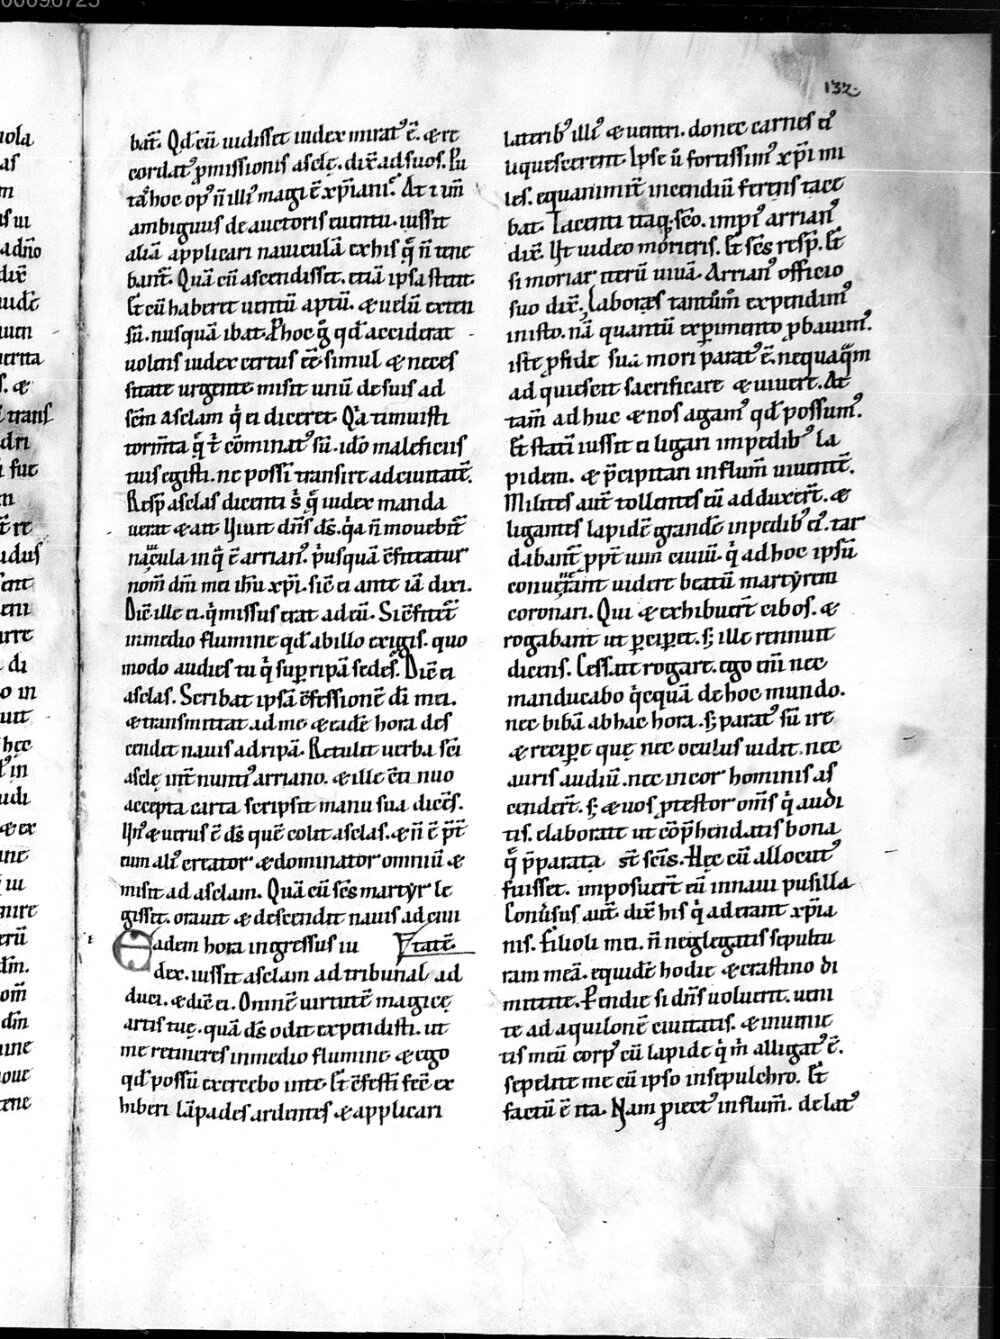 132.
bat᷑. Qđ cū uidisset iudex mirat᷒ ē. & re
cordat᷒ ꝓmissionis asclę. dix̄ ad suos. Pu
tat᷒ hoc op᷒ n̄ illi᷒ magi ē xp̄iani. At i um̄
ambiguus de auctoris euentu. iussit
aliā applicari nauiculā ex his q̄ n̄ tene
bant᷑. Quā cū ascendisset. etiā ipsa stetit.
Et cū haberet uentū aptū. & uelū exten
sū. nusquā ibat. P hoc g̊ qđ acciderat
uolens iudex certus eē. simul & neces
sitate urgente misit unū de suis ad
sc̄m asclam q̇ ei diceret. Q̄a timuisti
torm̄ta q̄ t̄ cōminat᷒ sū. idō maleficiis
tuis egisti. ne possī transire ad ciuitatē.
Resp̄ asclas dicenti s̄ q̄ iudex manda
uerat & ait. Viuit dn̄s ds̄. q̇a n̄ mouebit᷑
nauicula in q̄ ē arrian᷒. p̓usquā c̄fiteatur
nom̄ dn̄i mei ih̄u xp̄i. sic̄ ei ante iā dixi.
Dix̄ ille ei. q̇ missus erat ad eū. Sic̄ fitet᷑
in medio flumine qđ ab illo exigis. quo
modo audies tu q̇ sup ripā sedes. Dix̄ ei
asclas. Scribat ipsā c̄fessionē dī mei.
& transmittat ad me & eadē hora des
cendet nauis ad ripā. Retulit uerba sc̄i
asclę int̄nunti᷒ arriano. & ille c̄tinuo
accepta carta scripsit manu sua dicēs.
Vn᷒ & uerus ē ds̄ quē colit asclas. & n̄ ē p̄t̄
eum ali᷒ creator & dominator omniū &
misit ad asclam. Quā cū sc̄s martyr le
gisset. orauit & descendit nauis ad ciui
Eadem hora ingressus iu tatē.
dex. iussit asclam ad tribunal ad
duci. & dix̄ ei. Omnē uirtutē magicę
artis tuę. quā ds̄ odit expendisti. ut
me retineres in medio flumine & ego
qđ possū exercebo in te. Et c̄festī fec̄ ex
hiberi lāpades ardentes & applicari
laterib᷒ illi᷒ & uentri. donec carnes ei᷒
liquescerent. Ipse ū fortissim᷒ xp̄i mi
les. equanimit᷑ incendiū ferens tace
bat. Iacenti itaq; sc̄o. impi᷒ arrian᷒
dix̄. Vt uideo morieris. Et sc̄s resp̄. Et
si moriar iterū uiuā. Arrian᷒ officio
suo dix̄. Laborӕs tantūm̄ expendim᷒
in isto. nā quantū expimento ꝓbauim᷒.
iste ꝓ fide sua mori parat᷒ ē. nequaq̄m
adquiescit sacrificare & uiuere. At
tam̄ adhuc & nos agam᷒ qđ possum᷒.
Et statī iussit ei ligari in pedib᷒ la
pidem. & p̄cipitari in flum̄ uiuentē.
Milites aut᷑ tollentes eū adduxer̄t. &
ligantes lapidē grandē in pedib᷒ ei᷒. tar
dabant ppt᷑ uim̄ ciuiū. q̇ ad hoc ipsū
conuen̄ant uidere beatū martyrem
coronari. Qui & exhibuer̄t cibos. &
rogabant ut pciperet. s; ille rennuit
dicens. Cessate rogare. ego en̄i nec
manducabo q̇cquā de hoc mundo.
nec bibā ab hac hora. s; parat᷒ sū ire
& recipe quę nec oculus uidit. nec
auris audiū. nec in cor hominis as
cender̄t. s; & uos ptestor om̄s q̇ audi
tis. elaborate ut cōp̄hendatis bona
q̄ p̄parata st̄ sc̄is. Hęc cū allocut᷒
fuisset. imposuer̄t eū in naui pusilla
Conuersus aut᷑. dix̄ his q̇ aderant xp̄ia
nis. Filioli mei. n̄ neglegatis sepultu
ram meā. equidē hodie & crastino di
mittite. Pendie si dn̄s uoluerit. ueni
te ad aquilonē ciuitatis. & inuenie
tis meū corp᷒ cū lapide q̇ m̄ alligat᷒ ē.
sepelite me cū ipso in sepulchro. Et
factū ē ita. Nam ꝓiect᷒ in flum̄. delat᷒